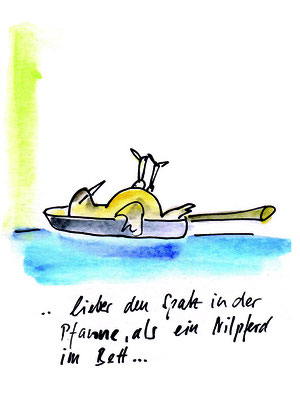 .. lieber den Spatz in der
Pfanne, als ein Nilpferd
im Bett...